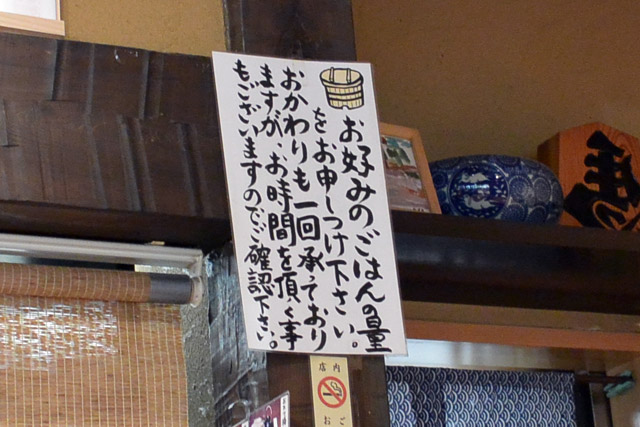 お好みのごはんの量
をお申しつけ下さい。
おかわりも一回承っており
ますが、お時間を頂く事
もございますのでご確認下さい。
店内